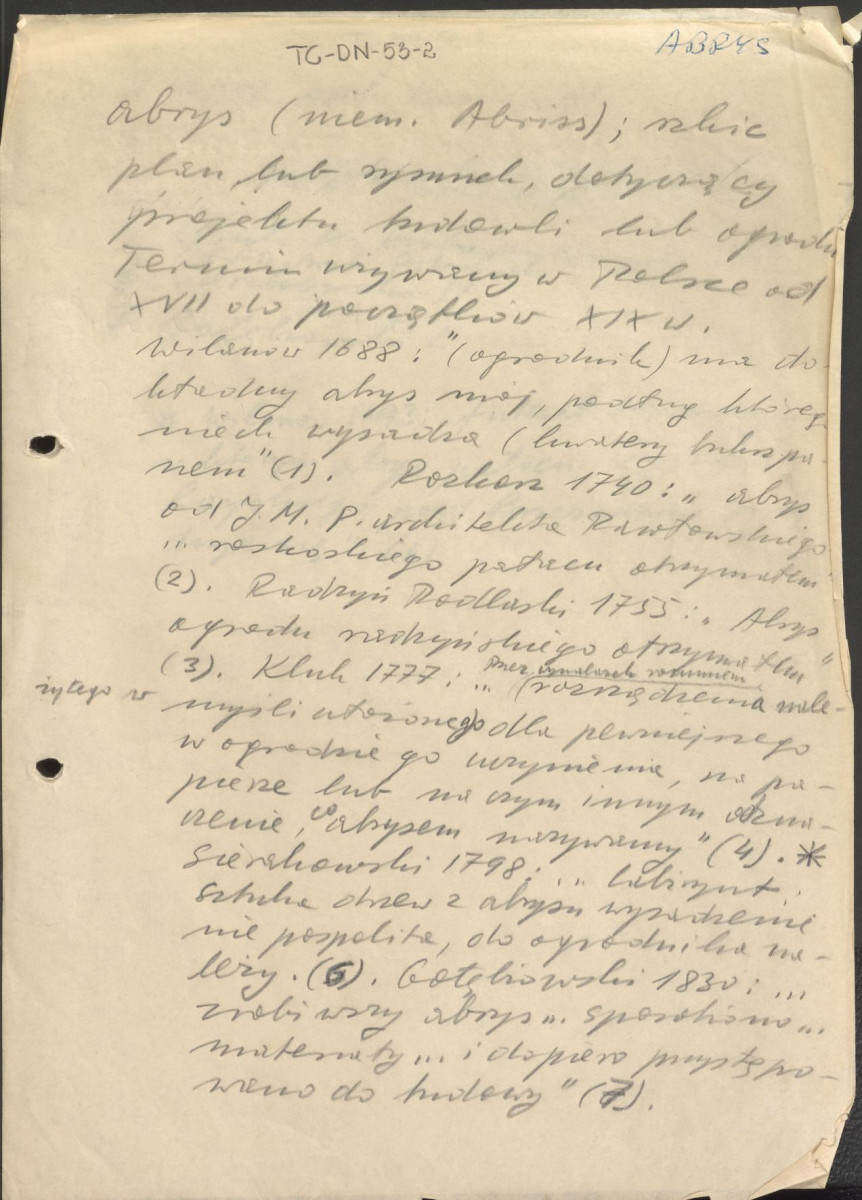 TG-DN-53-2
ABRYS
abrys (niem. Abriss); szkic
plan, lub rysunek, dotyczący
projektu budowli lub ogrodu
Termin używany w Polsce od
XVII do początków XIX w.
Wilanów 1688: "(ogrodnik) ma do-
kładny abrys mój, podług którego
niech wysadza (kwatery bukszpa-
nem" (1). Rozkosz 1740: „abrys
od J.M.P. architekta Rawłowskiego
... roskoskiego pałacu otrzymałem"
(2). Radzyń Podlaski 1755: „Abrys
ogrodu radzyńskiego otrzymałem"
(3). Kluk 1777: „... (rozrządzenia nale-
przez wynalazek rozumiem
żytego w
myśli ułożonego) dla pewniejszego
w ogrodzie go uczynienia, na pa-
pierze lub na czym innym ozna-
czenie, co abrysem nazywamy" (4). *
Sierakowski 1798: „... labirynt.
sztuka drzew z abrysu wysadzenie
nie pospolita, do ogrodnika na-
leży. (6). Gołębiowski 1830: ...
zrobiwszy abrys ... sposobiono ...
materiały ... i dopiero przystępo-
wano do budowy" (7).